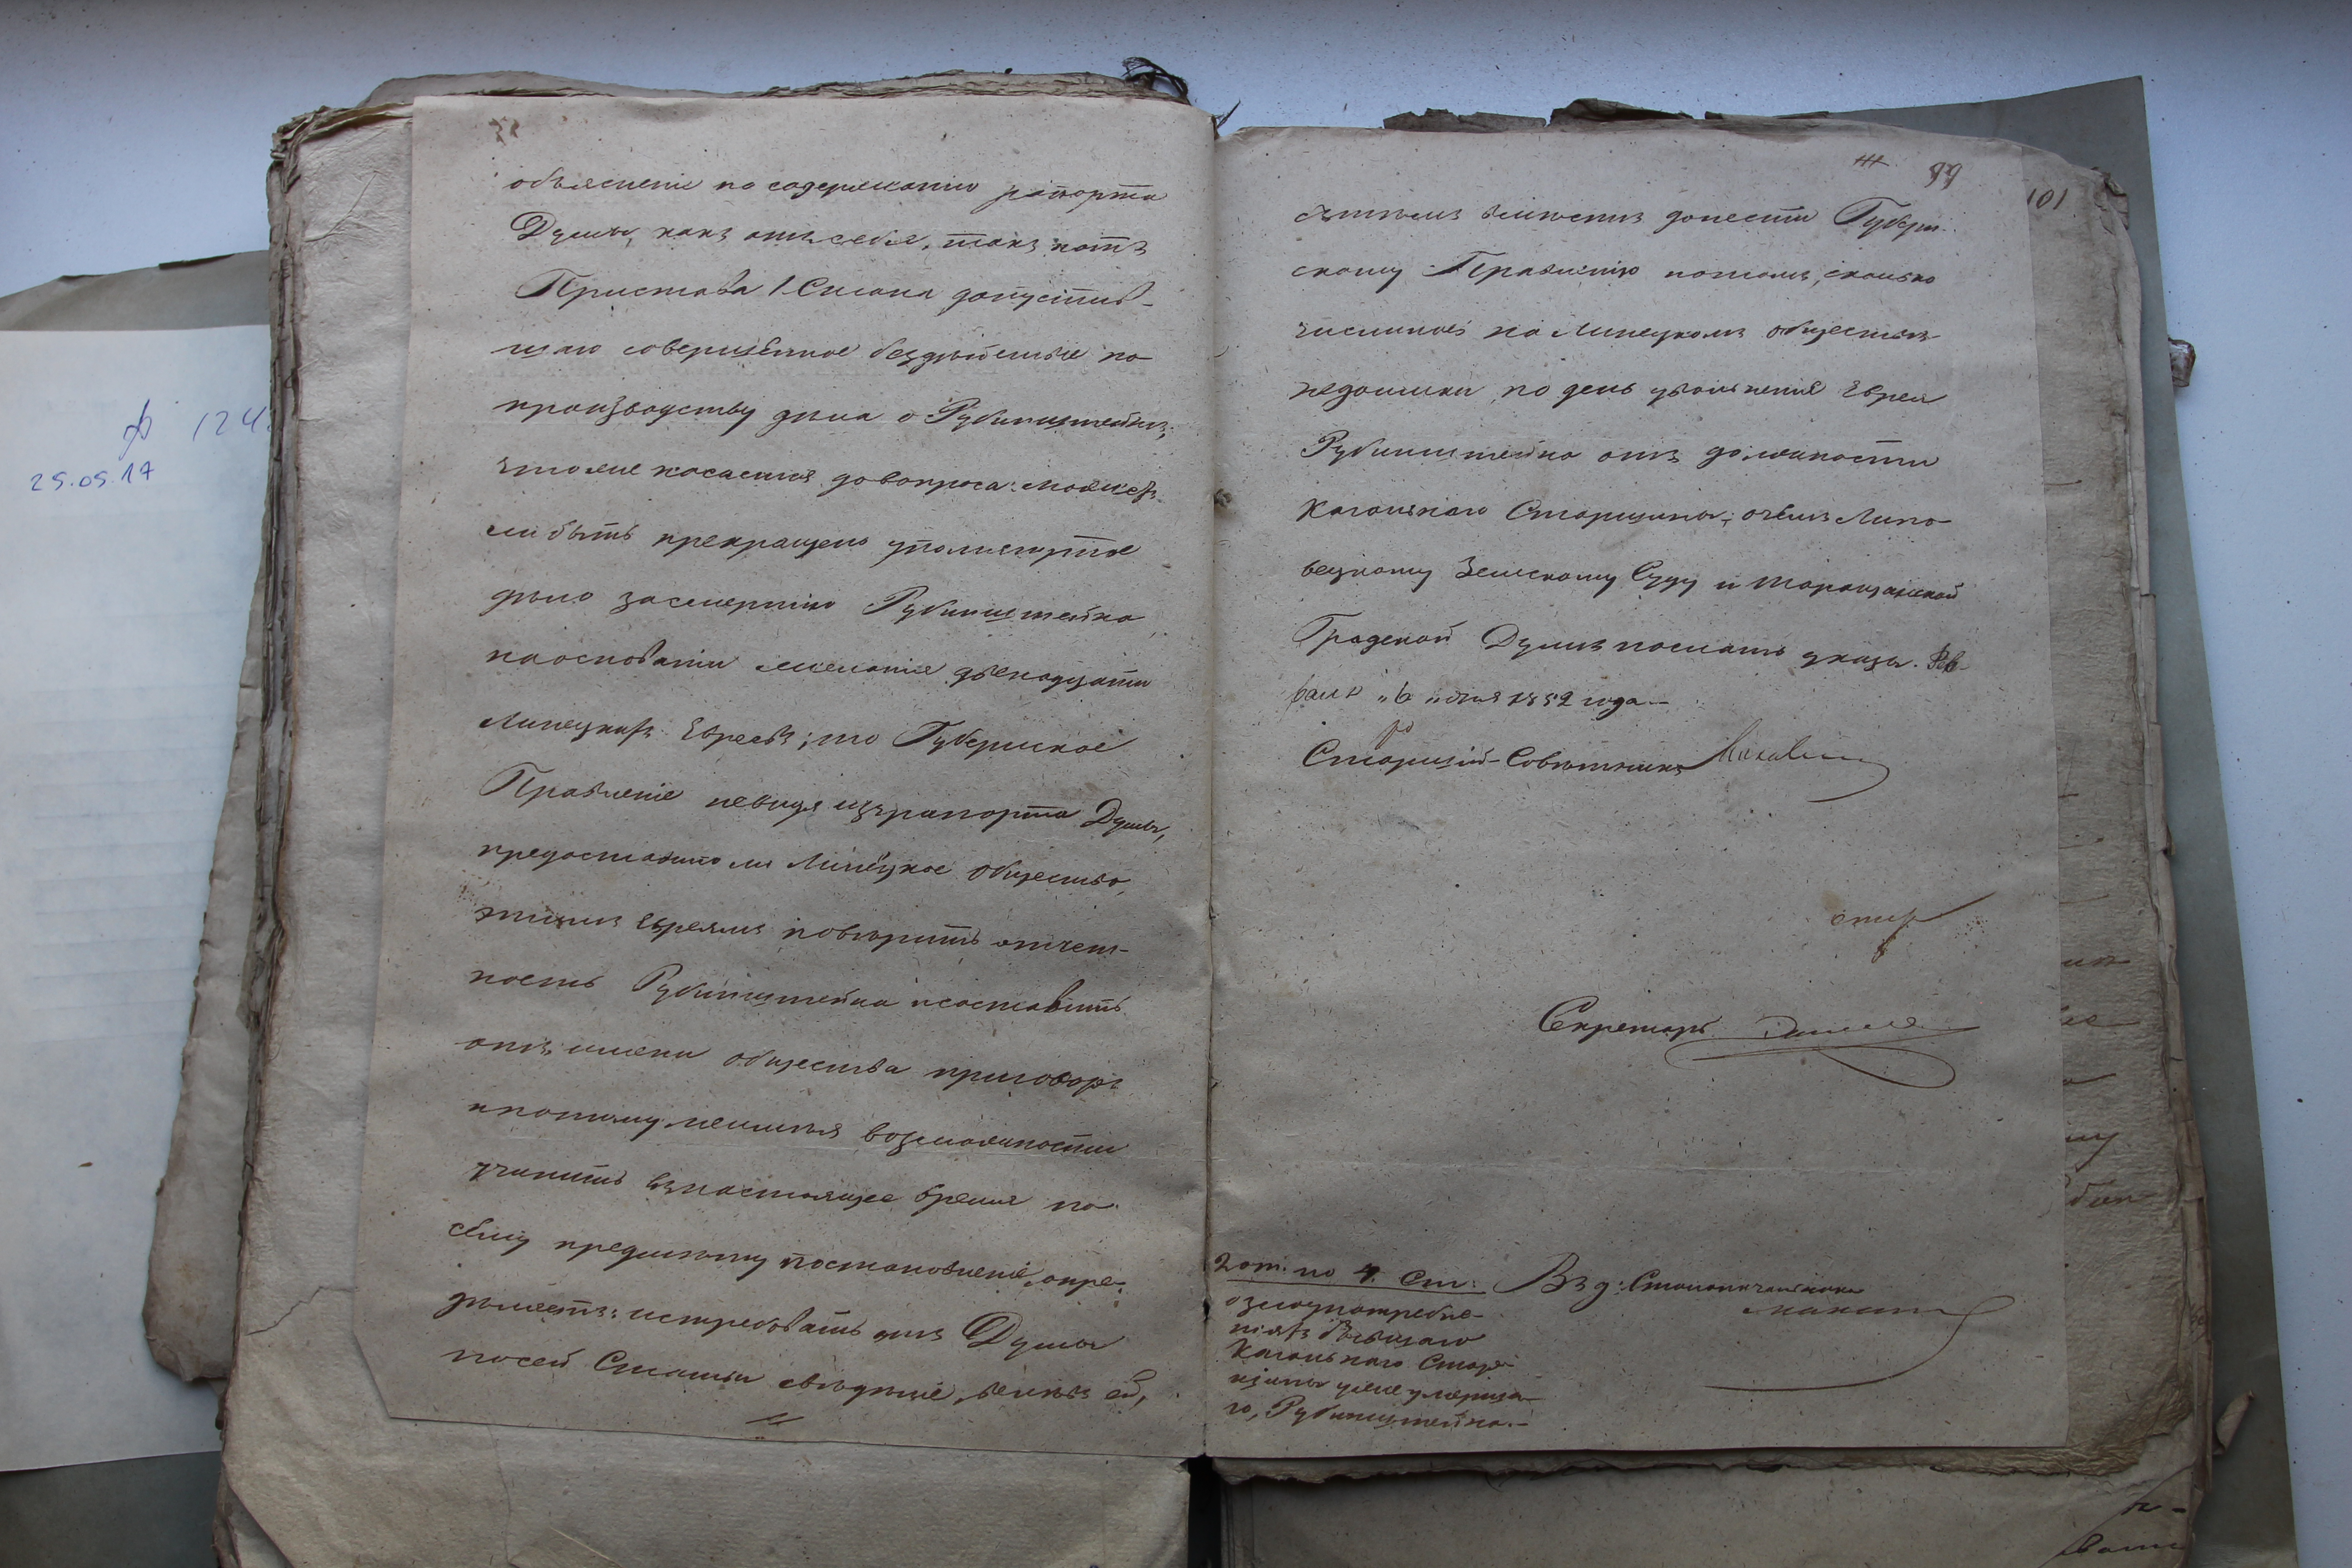 ф 124
25.05.17
объясненіе по содержанію рапорта
Думы, какъ отъ себя, такъ и отъ
Пристава 1 Стана допустив-
шаго совершенное бездѣйствіе по
производству дѣла о Рубинштейнѣ;
чтоже касается до вопроса: можетъ
ли быть прекращено упомянутое
дѣло за смертію Рубинштейна,
на основаніи желанія двенадцати
Липецкихъ Евреевъ; то Губернское
Правленіе не видя изъ рапорта Думы,
предоставило ли Липецкое общество,
этимъ Евреямъ повѣрить отчет-
ность Рубинштейна и составить
отъ имени общества приговоръ
и потому не имѣя возможности
учинить въ настоящее время по
сему предмету постановленіе, опре-
дѣляетъ: истребовать отъ Думы
по сей Статьи свѣдѣніе, велѣвъ ей,
99
101
съ тѣмъ вмѣстѣ донести Губерн-
скому Правленію о томъ, сколько
числилось на Липецкомъ обществѣ
недоимки, по день увольненія Еврея
Рубинштейна отъ должности
Кагальнаго Старшины; о чемъ Липо-
вецкому Земскому Суду и Таращанской
Градской Думѣ послать указы. Фев-
раля "6" дня 1852 года.
Старшій Совѣтникъ
Секретарь
2 от. по 4. Ст:
о злоупотребле-
ніяхъ бывшаго
Кагальнаго Стар-
шины уже умерша-
го, Рубинштейна.
Вз д: Столоначальника